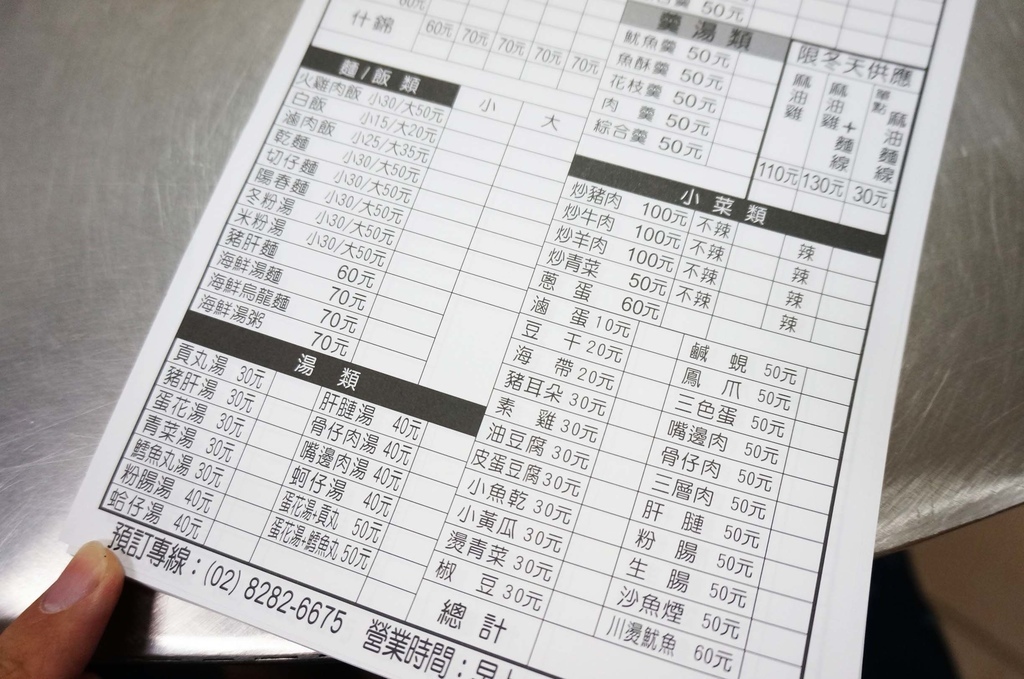 60元
什錦 60元 70元 70元 70元 70元
麵/飯類 小 大
火雞肉飯 小30/大50元
白飯 小15/大20元
滷肉飯 小25/大35元
乾麵 小30/大50元
切仔麵 小30/大50元
陽春麵 小30/大50元
冬粉湯 小30/大50元
米粉湯 小30/大50元
豬肝麵 60元
海鮮湯麵 70元
海鮮烏龍麵 70元
海鮮湯粥 70元
湯類
貢丸湯 30元 肝腱湯 40元
豬肝湯 30元 骨仔肉湯 40元
蛋花湯 30元 嘴邊肉湯 40元
青菜湯 30元 蚵仔湯 40元
鱈魚丸湯 30元 蛋花湯+貢丸 50元
粉腸湯 40元 蛋花湯+鱈魚丸 50元
蛤仔湯 40元
綜合羹 50元
羹湯類
魷魚羹 50元
魚酥羹 50元
花枝羹 50元
肉羹 50元
綜合羹 50元
限冬天供應
麻油雞 110元
麻油雞+麵線 130元
單點麻油麵線 30元
小菜類
炒豬肉 100元 不辣 辣
炒牛肉 100元 不辣 辣
炒羊肉 100元 不辣 辣
炒青菜 50元 不辣 辣
蔥蛋 60元
滷蛋 10元 鹹蜆 50元
豆干 20元 鳳爪 50元
海帶 20元 三色蛋 50元
豬耳朵 30元 嘴邊肉 50元
素雞 30元 骨仔肉 50元
油豆腐 30元 三層肉 50元
皮蛋豆腐 30元 肝腱 50元
小魚乾 30元 粉腸 50元
小黃瓜 30元 生腸 50元
燙青菜 30元 沙魚煙 50元
椒豆 30元 川燙魷魚 60元
總計
預訂專線：(02) 8282-6675 營業時間：早上